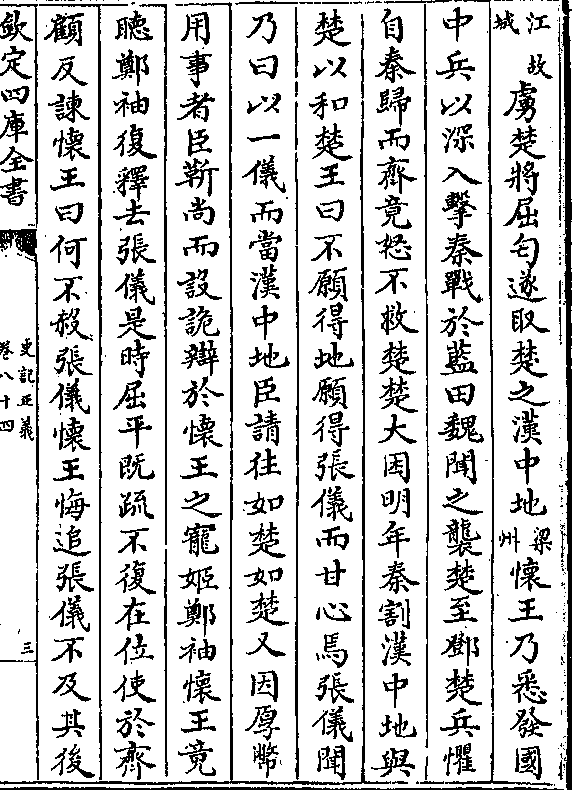 江故城虜楚將屈匄遂取楚之漢中地梁州懷王乃悉發國
中兵以深入擊秦戰於藍田魏聞之襲楚至鄧楚兵懼
自秦歸而齊竟怒不救楚楚大困明年秦割漢中地與
楚以和楚王曰不願得地願得張儀而甘心焉張儀聞
乃曰以一儀而當漢中地臣請往如楚如楚又因厚幣
用事者臣靳尚而設詭辯於懷王之寵姬鄭袖懷王竟
聽鄭袖復釋去張儀是時屈平既疏不復在位使於齊
顧反諫懷王曰何不殺張儀懷王悔追張儀不及其後
欽定四庫全書
史記正義
卷八十四
三